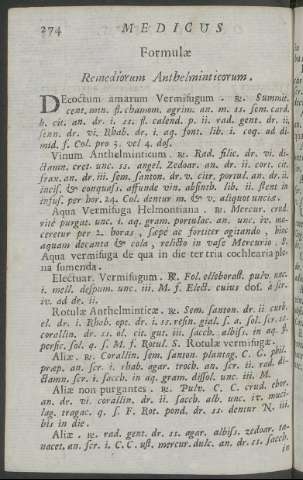 274 MEDICUS
Formulæ
Remediorum Anthelminticorum.
DEcoctum amarum Vermifugum. ℞. Summit.
cent. min. fl. chamom. agrim. an. m. ss. sem. card.
b. cit. an. dr. i. ss. fl. calend. p. ii. rad. gent. dr. ii.
senn. dr. vi. Rhab. dr. i. aq. font. lib. i. coq. ad di-
mid. f. Col. pro 3. vel 4. dos.
Vinum Anthelminticum. ℞. Rad. filic. dr. vi. di-
ctamn. cret. unc. ss. angel. Zedoar. an. dr. ii. cort. cit.
frax. an. dr. iii. sem. santon. dr. v. citr. portul. an. dr. ii.
incis. & conquass. affunde vin. absinth. lib. ii. stent in
infus. per hor. 24. Col. dentur m. & v. aliquot unciæ.
Aqua Vermifuga Helmontiana. ℞. Mercur. crud.
ritè purgat. unc. i. aq. gram. portulac. an. unc. iv. ma-
ceretur per 2. horas, sæpe ac fortiter agitando, hinc
aquam decanta & cola, relicto in vase Mercurio. S.
Aqua vermifuga de qua in die ter tria cochlearia ple-
na sumenda.
Electuar. Vermifugum. ℞. Fol. elleborast. pulv. unc.
i. mell. despum. unc. iii. M. f. Elect. cujus dos. à scr.
iv. ad dr. ii.
Rotulæ Anthelminticæ. ℞. Sem. santon. dr. ii. curb.
el. dr. i. Rhab. opt. dr. i. ss. resin. gial. s. a. sol. scr. ss.
corallin. dr. ss. ol. cit. gtt. iii. sacch. albiss. in aq. fl.
persic. sol. q. s. M. f. Rotul. S. Rotulæ vermifugæ.
Aliæ. ℞. Corallin. sem. santon. plantag. C. C. phil.
præp. an. scr. i. rhab. agar. troch. an. scr. ii. rad. di-
ctamn. scr. i. sacch. in aq. gram. dissol. unc. iii. M.
Aliæ non purgantes. ℞. Pulv. C. C. crud. ebor.
an. dr. vi. corallin. dr. ii. sacch. alb. unc. iv. muci-
lag. tragac. q. s. F. Rot. pond. dr. ss. dentur N. iii.
bis in die.
Aliæ. ℞. rad. gent. dr. ss. agar. albiss. zedoar. ta-
nacet. an. scr. i. C. C. ust. mercur. dulc. an. dr. ss. sacch.
in